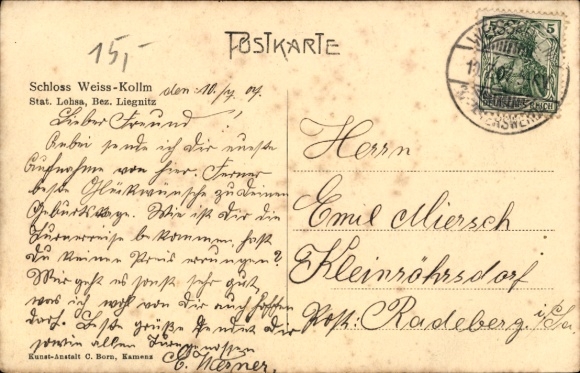 15,-
POSTKARTE
5
Schloss Weiss-Kollm
Stat. Lohsa, Bez. Liegnitz
den: 10. 09.
Lieber Freund!
Anbei sende ich Dir eine
Aufnahme von hier. Ferner
beste Glückwünsche zu Deinem
Geburtstage. Wie ist Dir die
Turnerreise bekommen, hast
Du keinen Preis errungen?
Mir geht es sonst sehr gut,
was ich wohl von Dir auch hoffen
darf. Es grüßt Dir
sowie allen Turngenossen
E. Werner.
Herrn
Emil Miersch
Kleinröhrsdorf
Post: Radeberg. i/Sa.
Kunst-Anstalt C. Born, Kamenz